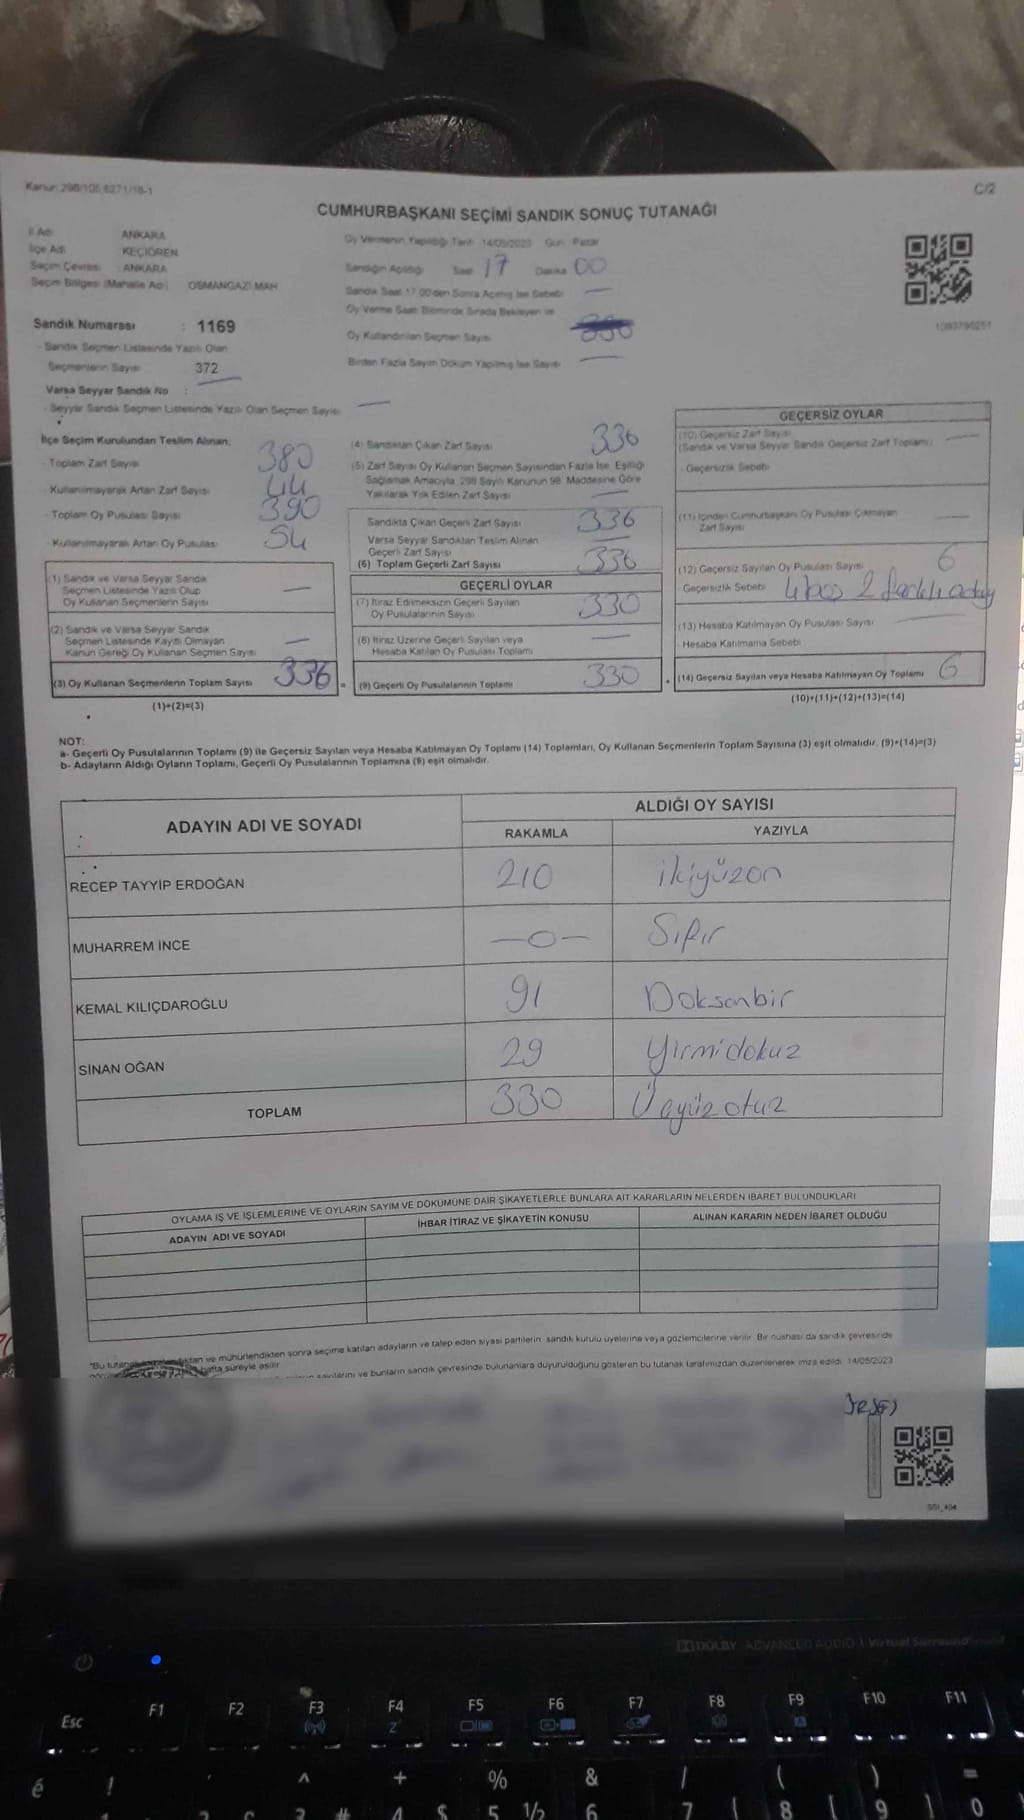 Kanun: 298/105,6271/18-1
C/2
CUMHURBAŞKANI SEÇİMİ SANDIK SONUÇ TUTANAĞI
İl Adı ANKARA
İlçe Adı KEÇİÖREN
Seçim Çevresi : ANKARA
Seçim Bölgesi (Mahalle Adı) OSMANGAZİ MAH
Sandık Numarası : 1169
- Sandık Seçmen Listesinde Yazılı Olan
Seçmenlerin Sayısı 372
Varsa Seyyar Sandık No :
- Seyyar Sandık Seçmen Listesinde Yazılı Olan Seçmen Sayısı —
Oy Vermenin Yapıldığı Tarih 14/05/2023 Gün: Pazar
Sandığın Açıldığı Saat 17 Dakika 00
Sandık Saat 17.00'den Sonra Açılmış İse Sebebi —
Oy Verme Saati Bitiminde Sırada Bekleyen ve
Oy Kullandırılan Seçmen Sayısı
Birden Fazla Sayım Döküm Yapılmış İse Sayısı —
İlçe Seçim Kurulundan Teslim Alınan;
- Toplam Zarf Sayısı 380
- Kullanılmayarak Artan Zarf Sayısı 44
- Toplam Oy Pusulası Sayısı 390
- Kullanılmayarak Artan Oy Pusulası 54
(1) Sandık ve Varsa Seyyar Sandık
Seçmen Listesinde Yazılı Olup
Oy Kullanan Seçmenlerin Sayısı —
(2) Sandık ve Varsa Seyyar Sandık
Seçmen Listesinde Kayıtlı Olmayan
Kanun Gereği Oy Kullanan Seçmen Sayısı —
(3) Oy Kullanan Seçmenlerin Toplam Sayısı 336 =
(1)+(2)=(3)
(4) Sandıktan Çıkan Zarf Sayısı 336
(5) Zarf Sayısı Oy Kullanan Seçmen Sayısından Fazla İse, Eşitliği
Sağlamak Amacıyla, 298 Sayılı Kanunun 98. Maddesine Göre
Yakılarak Yok Edilen Zarf Sayısı —
Sandıkta Çıkan Geçerli Zarf Sayısı 336
Varsa Seyyar Sandıktan Teslim Alınan
Geçerli Zarf Sayısı —
(6) Toplam Geçerli Zarf Sayısı 336
GEÇERLİ OYLAR
(7) İtiraz Edilmeksizin Geçerli Sayılan
Oy Pusulalarının Sayısı 330
(8) İtiraz Üzerine Geçerli Sayılan veya
Hesaba Katılan Oy Pusulası Toplamı —
(9) Geçerli Oy Pusulalarının Toplamı 330 +
1093790251
GEÇERSİZ OYLAR
(10) Geçersiz Zarf Sayısı
(Sandık ve Varsa Seyyar Sandık Geçersiz Zarf Toplamı) —
- Geçersizlik Sebebi
(11) İçinden Cumhurbaşkanı Oy Pusulası Çıkmayan
Zarf Sayısı —
(12) Geçersiz Sayılan Oy Pusulası Sayısı 6
Geçersizlik Sebebi 4 boş 2 farklı aday
(13) Hesaba Katılmayan Oy Pusulası Sayısı —
Hesaba Katılmama Sebebi
(14) Geçersiz Sayılan veya Hesaba Katılmayan Oy Toplamı 6
(10)+(11)+(12)+(13)=(14)
NOT:
a- Geçerli Oy Pusulalarının Toplamı (9) ile Geçersiz Sayılan veya Hesaba Katılmayan Oy Toplamı (14) Toplamları, Oy Kullanan Seçmenlerin Toplam Sayısına (3) eşit olmalıdır. (9)+(14)=(3)
b- Adayların Aldığı Oyların Toplamı, Geçerli Oy Pusulalarının Toplamına (9) eşit olmalıdır.
ADAYIN ADI VE SOYADI
ALDIĞI OY SAYISI
RAKAMLA YAZIYLA
RECEP TAYYİP ERDOĞAN 210 ikiyüzon
MUHARREM İNCE —0— Sıfır
KEMAL KILIÇDAROĞLU 91 Doksanbir
SİNAN OĞAN 29 Yirmidokuz
TOPLAM 330 Üçyüzotuz
OYLAMA İŞ VE İŞLEMLERİNE VE OYLARIN SAYIM VE DÖKÜMÜNE DAİR ŞİKAYETLERLE BUNLARA AİT KARARLARIN NELERDEN İBARET BULUNDUKLARI
ADAYIN ADI VE SOYADI İHBAR İTİRAZ VE ŞİKAYETİN KONUSU ALINAN KARARIN NEDEN İBARET OLDUĞU
ve mühürlendikten sonra seçime katılan adayların ve talep eden siyasi partilerin sandık kurulu üyelerine veya gözlemcilerine verilir. Bir nüshası da sandık çevresinde
hafta süreyle asılır.
sayılarını ve bunların sandık çevresinde bulunanlara duyurulduğunu gösteren bu tutanak tarafımızdan düzenlenerek imza edildi. 14/05/2023
DOLBY ADVANCED AUDIO | Virtual Surround
Esc F1 F2 F3 F4 F5 F6 F7 F8 F9 F10 F11
é ! ^ + % & / ( ) =
# 4 $ 5 ½ 6 7 { 8 [ 9 ] 0